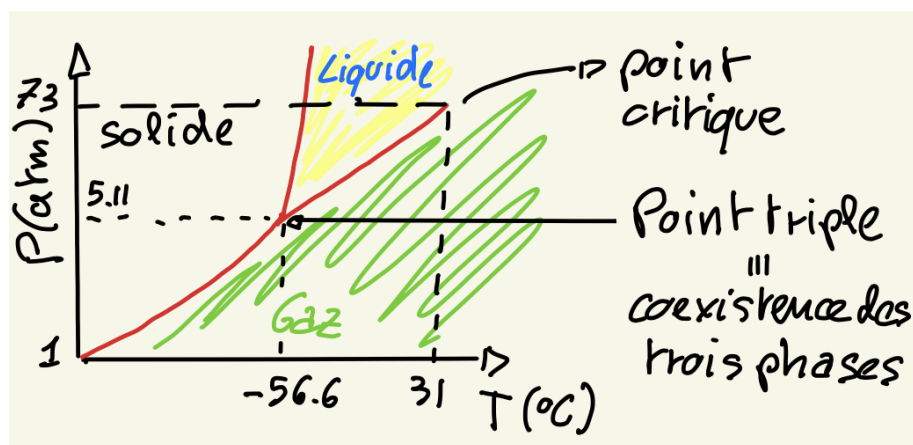 P(atm)
73
5.11
1
solide
Liquide
Gaz
-56.6
31
T(°C)
point
critique
Point triple
coexistence des
trois phases